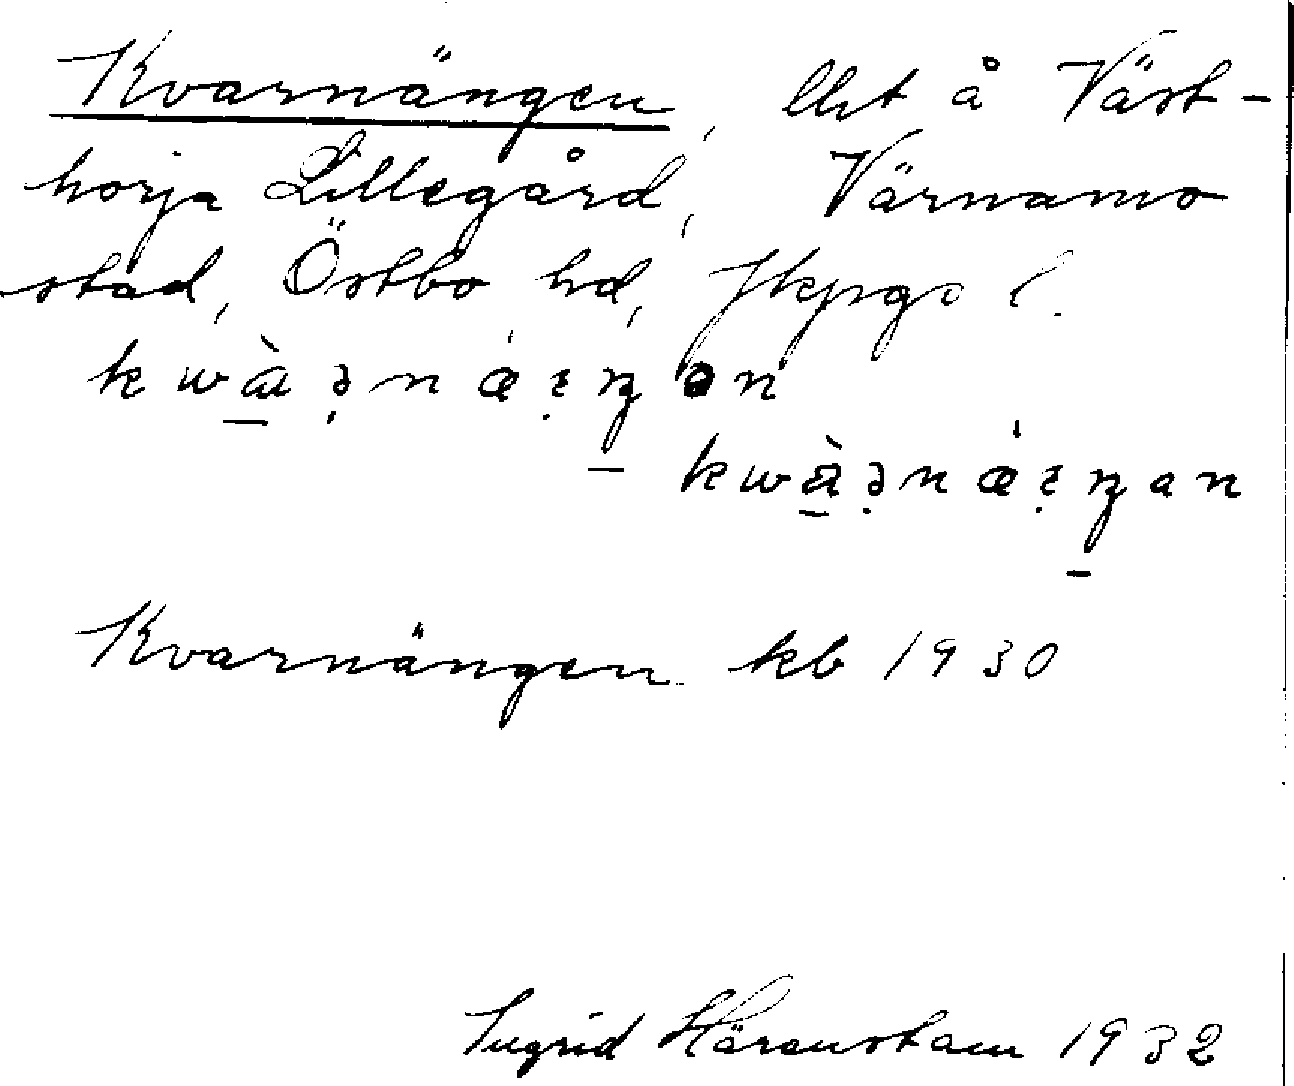 Kvarnängen, lht å Väst-
horja Lillegård, Värnamo
stad, Östbo hd, Jkpgs l.
kwàə̣nǽɛ̣ŋən
kwàə̣nǽɛ̣ŋan
Kvarnängen kb 1930
Ingrid Härenstam 1932